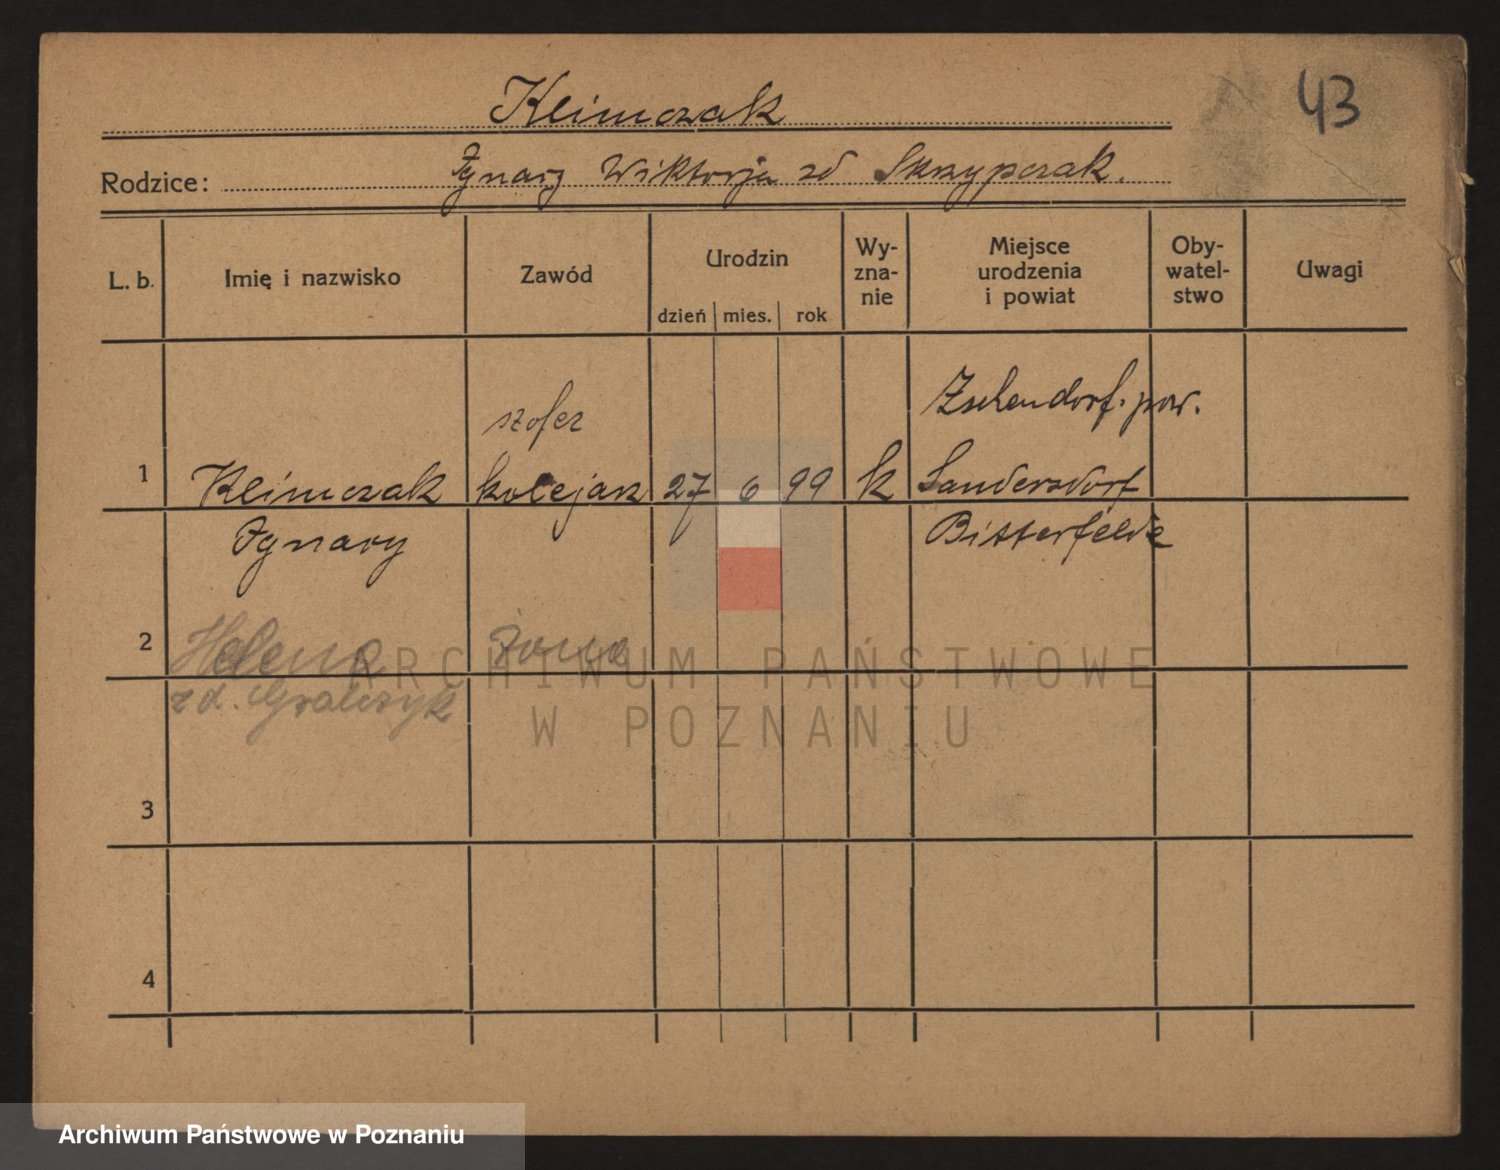 43
Klimczak
Rodzice: Ignacy Wiktorja zd Skrzypczak.
L. b. Imię i nazwisko Zawód Urodzin dzień mies. rok Wy-zna-nie Miejsce urodzenia i powiat Oby-watel-stwo Uwagi
szofer Zschendorf. pow.
1 Klimczak kolejarz 27 6 99 k Sandersdorf
Ignacy Bitterfelde
2 Helena żona
zd. Gralczyk
3
4
ARCHIWUM PAŃSTWOWE
W POZNANIU
Archiwum Państwowe w Poznaniu